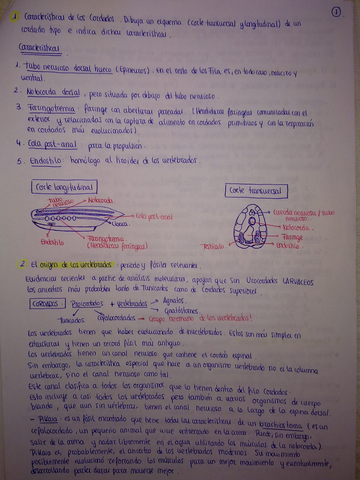 1. Características de los Cordados. Dibuja un esquema (corte transversal y longitudinal) de un
cordado tipo e indica dichas características.
1
Características
1. Tubo nervioso dorsal hueco (Epineuros). En el resto de los Fila es, en todo caso, macizo y
ventral.
2. Notocorda dorsal, pero situada por debajo del tubo nervioso.
3. Faringotremia: faringe con aberturas pareadas. (Hendiduras faríngeas comunicadas con el
exterior y relacionadas con la captura de alimento en cordados primitivos y con la respiración
en cordados más evolucionados).
4. Cola post-anal para la propulsión.
5. Endostilo: homólogo al tiroides de los vertebrados.
Corte longitudinal
Corte transversal
Tubo nervioso
Notocorda
Cola post-anal
Endostilo
Faringotremia
(hendiduras faríngeas)
Cuerda nerviosa / tubo nervioso
Notocorda
Faringe
Endostilo
2. El origen de los vertebrados: periodo y fósiles relevantes.
Evidencias recientes a partir de análisis moleculares, apoyan que son Urocordados LARVACEOS
los ancestros más probables tanto de Tunicados como de Cordados superiores.
CORDADOS: + Vertebrados
Agnatos.
Gnatóstomos.
Tunicados
Cefalocordados
Grupo hermano de los vertebrados!
Los vertebrados tienen que haber evolucionado de invertebrados. Estos son más simples en
estructura y tienen un récord fósil más antiguo.
Los vertebrados tienen un canal nervioso que contiene el cordón espinal.
Sin embargo, la característica especial que hace a un organismo vertebrado no es la columna
vertebral, sino el canal nervioso como tal.
Este canal clasifica a todos los organismos que lo tienen dentro del filo Cordados.
Esto incluye a casi todos los vertebrados pero también a varios organismos de cuerpo
blando, que aun sin vértebras, tienen el canal nervioso a lo largo de la espina dorsal.
- Pikaia: es un fósil encontrado que tiene todas las características de un branchiostoma (es un
cefalocordado, un pequeño animal que vive enterrado en la arena. Puede, sin embargo,
salir de la arena y nadar libremente en el agua utilizando los músculos de la notocorda).
Pikaia es, probablemente, el ancestro de los vertebrados modernos. Su movimiento
posiblemente evolucionó reforzando los músculos para un mejor movimiento y eventualmente,
desarrollando partes duras para moverse mejor.